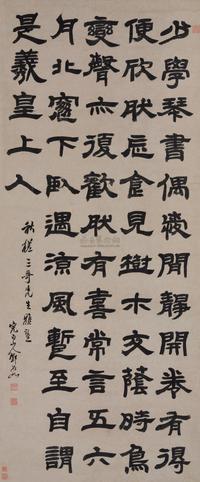 少學琴書偶愛閒靜開卷有得
便欣肰忘食見樹木交蔭時鳥
變聲亦復歡肰有喜常言五六
月北窗下臥遇涼風暫至自謂
是羲皇上人
三哥先生